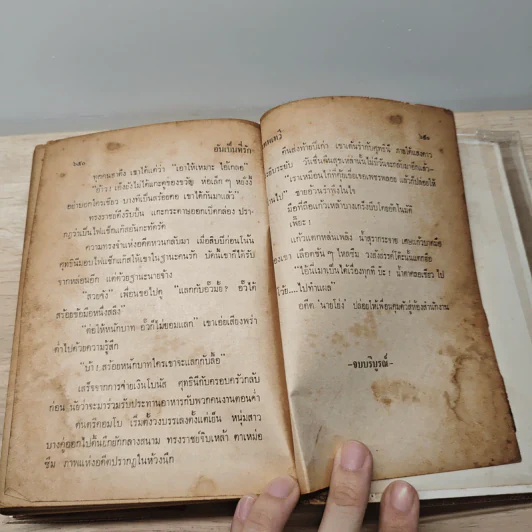 ๖๕๐
อันเป็นที่รัก
ทุกคนฮาคึง เขาได้แต่ว่า "เอาให้เหมาะ ไอ้เกลอ"
"บ๊ะ! เฮ้ยยังไม่ได้แกะดูของขวัญ ห่อเล็ก ๆ หยั่งงี้
อย่ามอกใครเชียว บางทีเป็นสร้อยคอ เขาได้กันมาแล้ว"
ทรงราชย์ดึงริบบิ้น แกะกระดาษออกเปิดกล่อง ปรา-
กฏว่าเป็นไฟแช็กแก๊สอันกะทัดรัด
ความทรงจำแห่งอดีตหวนกลับมา เมื่อสิบปีก่อนโน้น
ศุทธินีมอบไฟแช็กแก๊สให้เขาในฐานะคนรัก บัดนี้เขาก็ได้รับ
จากหล่อนอีก แต่ด้วยฐานะนายจ้าง
"สวยจัง" เพื่อนขอไปดู "แลกกับอั๊วมั้ย? อั๊วได้
สร้อยข้อมือหนังสลึง"
"ต่อให้หนักบาท-อั๊วก็ไม่ยอมแลก" เขาเอ่ยเสียงพร่า
ต่ำไปด้วยความรู้สึก
"บ้า! สร้อยหนักบาทใครเขาจะแลกกับลื้อ"
เสร็จจากการจ่ายเงินโบนัส ศุทธินีกับครอบครัวกลับ
ก่อน นัยว่าจะมาร่วมรับประทานอาหารกับพวกคนงานตอนค่ำ
คนตรีคอมโบ เริ่มตั้งวงบรรเลงตั้งแต่เย็น หนุ่มสาว
บางคู่ออกไปดิ้นยึกยักกลางสนาม ทรงราชย์จิบเหล้า ตาเหม่อ
ซึม ภาพแห่งอดีตปรากฏในห้วงนึก
๖๕๑
คืนส่งท้ายปีเก่า เขาเต้นรำกับศุทธินี ภายใต้แสงดาว
วันชื่นคืนสุขเหล่านั้นไม่มีวันจะกลับมาอีกแล้ว—
"เราเหมือนไก่ที่คุ้ยเขี่ยเจอเพชรพลอย แล้วก็ปล่อยให้
ชายอ้วนรำพึงในใจ
มือที่ถือแก้วเหล้าบางเกร็งบีบโดยอัตโนมัติ
เพี๊ยะ!
แก้วแตกหล่นเพล้ง น้ำสุรากระจาย เศษแก้วบาดมือ
ของเขา เลือดข้น ๆ ไหลริน วงสังสรรค์ได้ยินแตกฮือ
"ไอ้นี่เมาเป็นได้เรื่องทุกที บ๊ะ! น้ำตาคลอเชียว ไป
โว้ย....ไปทำแผล"
อดีต 'นายโยง' ปล่อยให้เพื่อนคุมตัวสู่ห้องสำนักงาน
-จบบริบูรณ์-